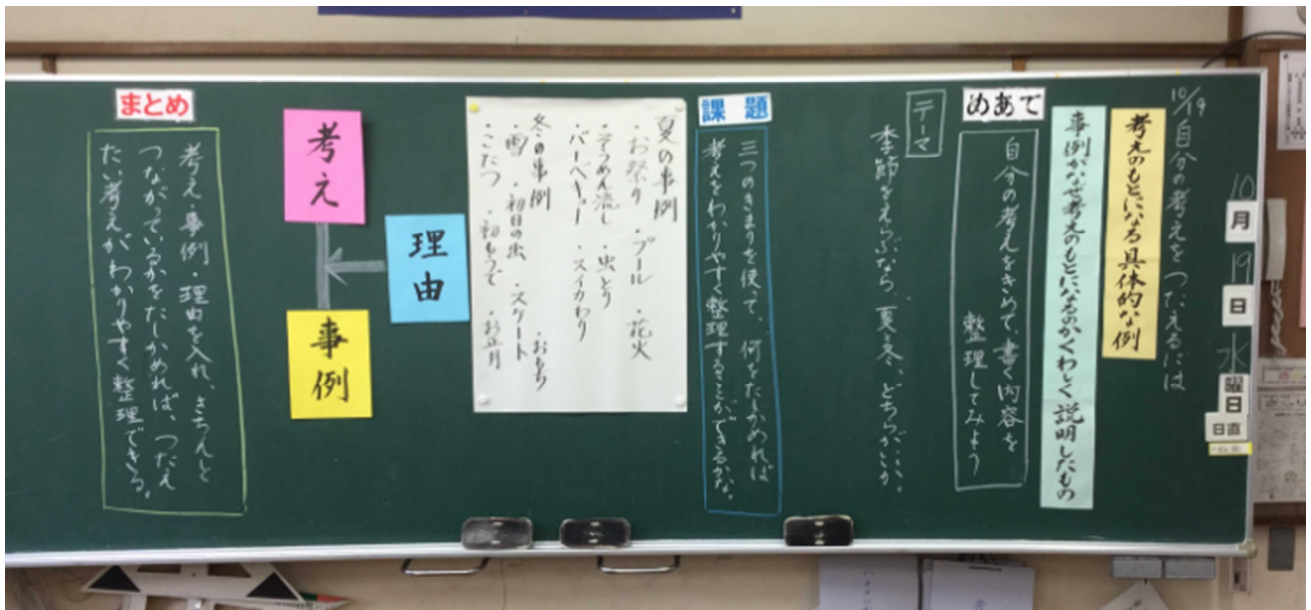 10月19日水曜日
日直
10/19 自分の考えをつたえるには
考えのもとになる具体的な例
事例がなぜ考えのもとになるのかくわしく説明したもの
めあて
自分の考えをきめて、書く内容を
整理してみよう
テーマ
季節をえらぶなら、夏・冬、どちらがいいか。
課題
三つのきまりを使って、何をたしかめれば
考えをわかりやすく整理することができるかな。
夏の事例
・お祭り ・プール ・花火
・そうめん流し ・虫とり
・バーベキュー ・スイカわり
冬の事例 ・おもち
・雪 ・初日の出 ・スケート
・こたつ ・初もうで ・お正月
理由
考え
事例
まとめ
考え・事例・理由を入れ、きちんと
つながっているかをたしかめれば、つたえ
たい考えがわかりやすく整理できる。